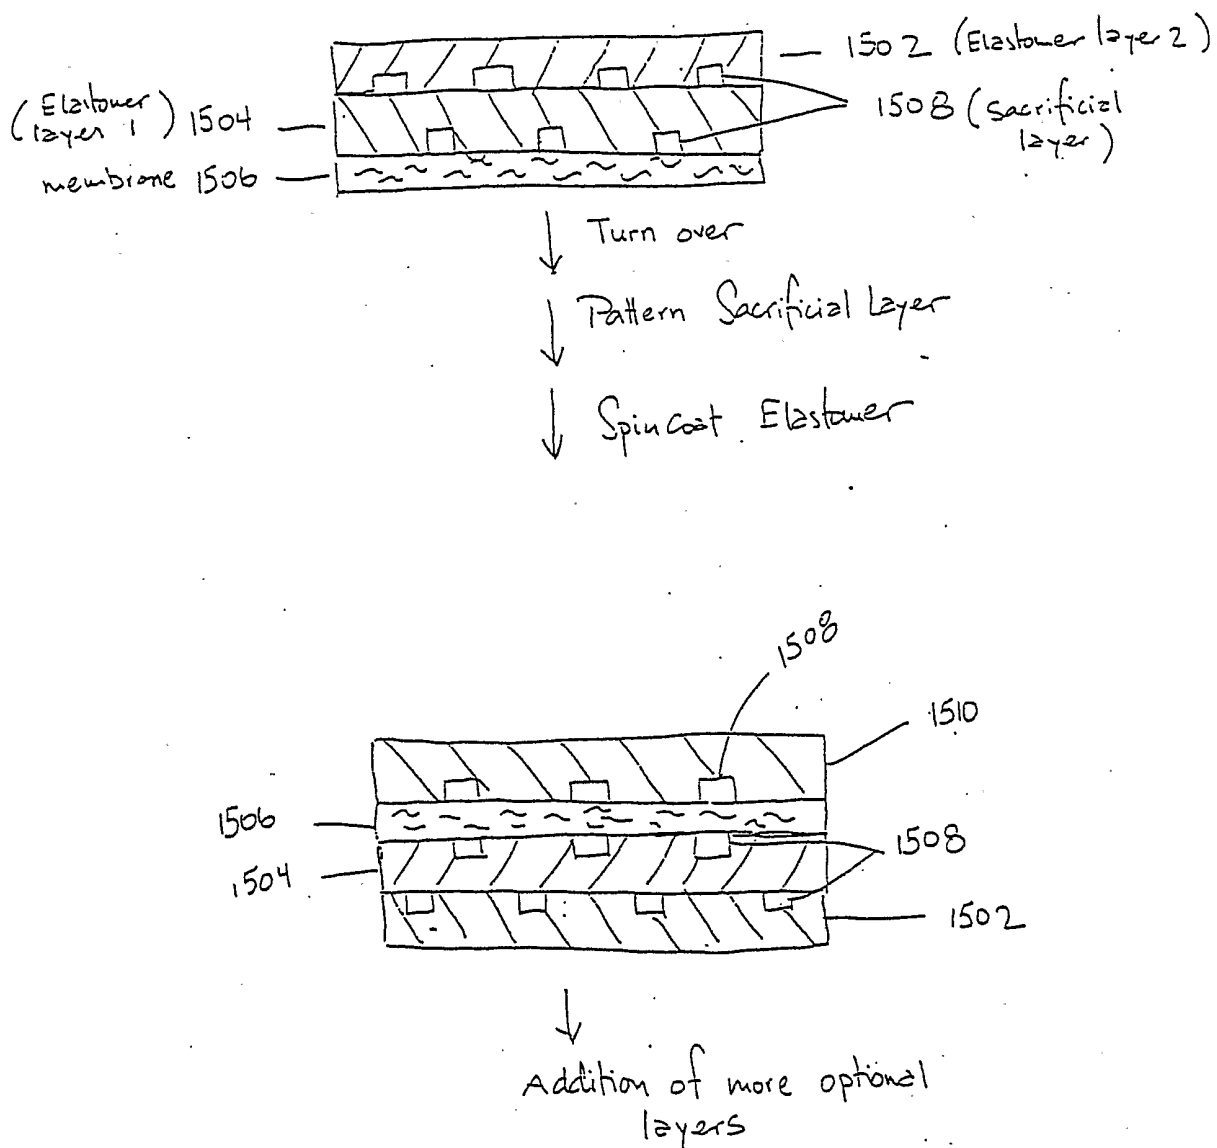 1502 (Elastomer layer 2)
(Elastomer
layer 1) 1504
1508 (sacrificial
layer)
membrane 1506
Turn over
Pattern Sacrificial Layer
Spin coat Elastomer
1508
1510
1506
1508
1504
1502
Addition of more optional
layers